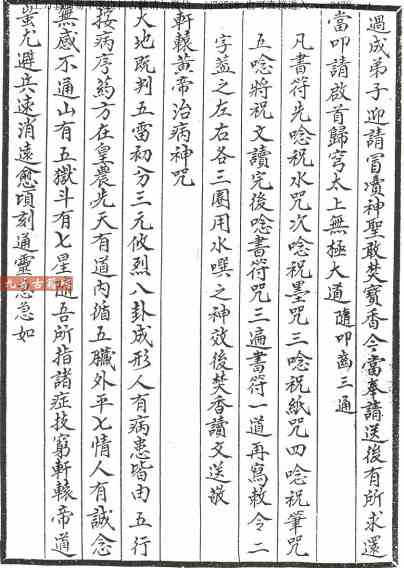 過咸弟子迎請冒瀆神聖敢焚寶香今當奉請送後有所求還
當叩請啟首歸穹太上無極大道 隨叩齒三通
凡書符先唸祝水咒次唸祝墨咒三唸祝紙咒四唸祝筆咒
五唸將祝文讀完後唸書符咒三遍書符一道再寫敕令二
字蓋之左右各三圈用水噀之神效後焚香讀文送
軒轅黃帝治病神咒
大地既判五雷初分三元攸烈八卦成形人有病患皆由五行
按病序药方在皇農先天有道內循五臟外平七情人有誠念
無感不通山有五獄斗有七星隨吾所指諸症技窮軒轅帝道
蚩尤避兵速消遠愈頃刻通靈急急如
九善古籍